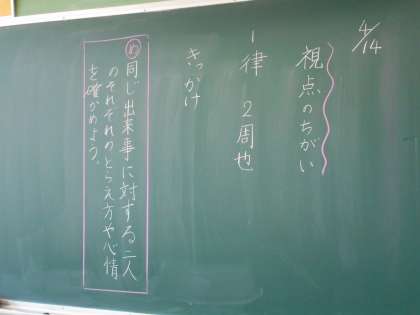 4/14
視点のちがい
1律 2周也
きっかけ
め 同じ出来事に対する二人
のそれぞれのとらえ方や心情
を確かめよう。